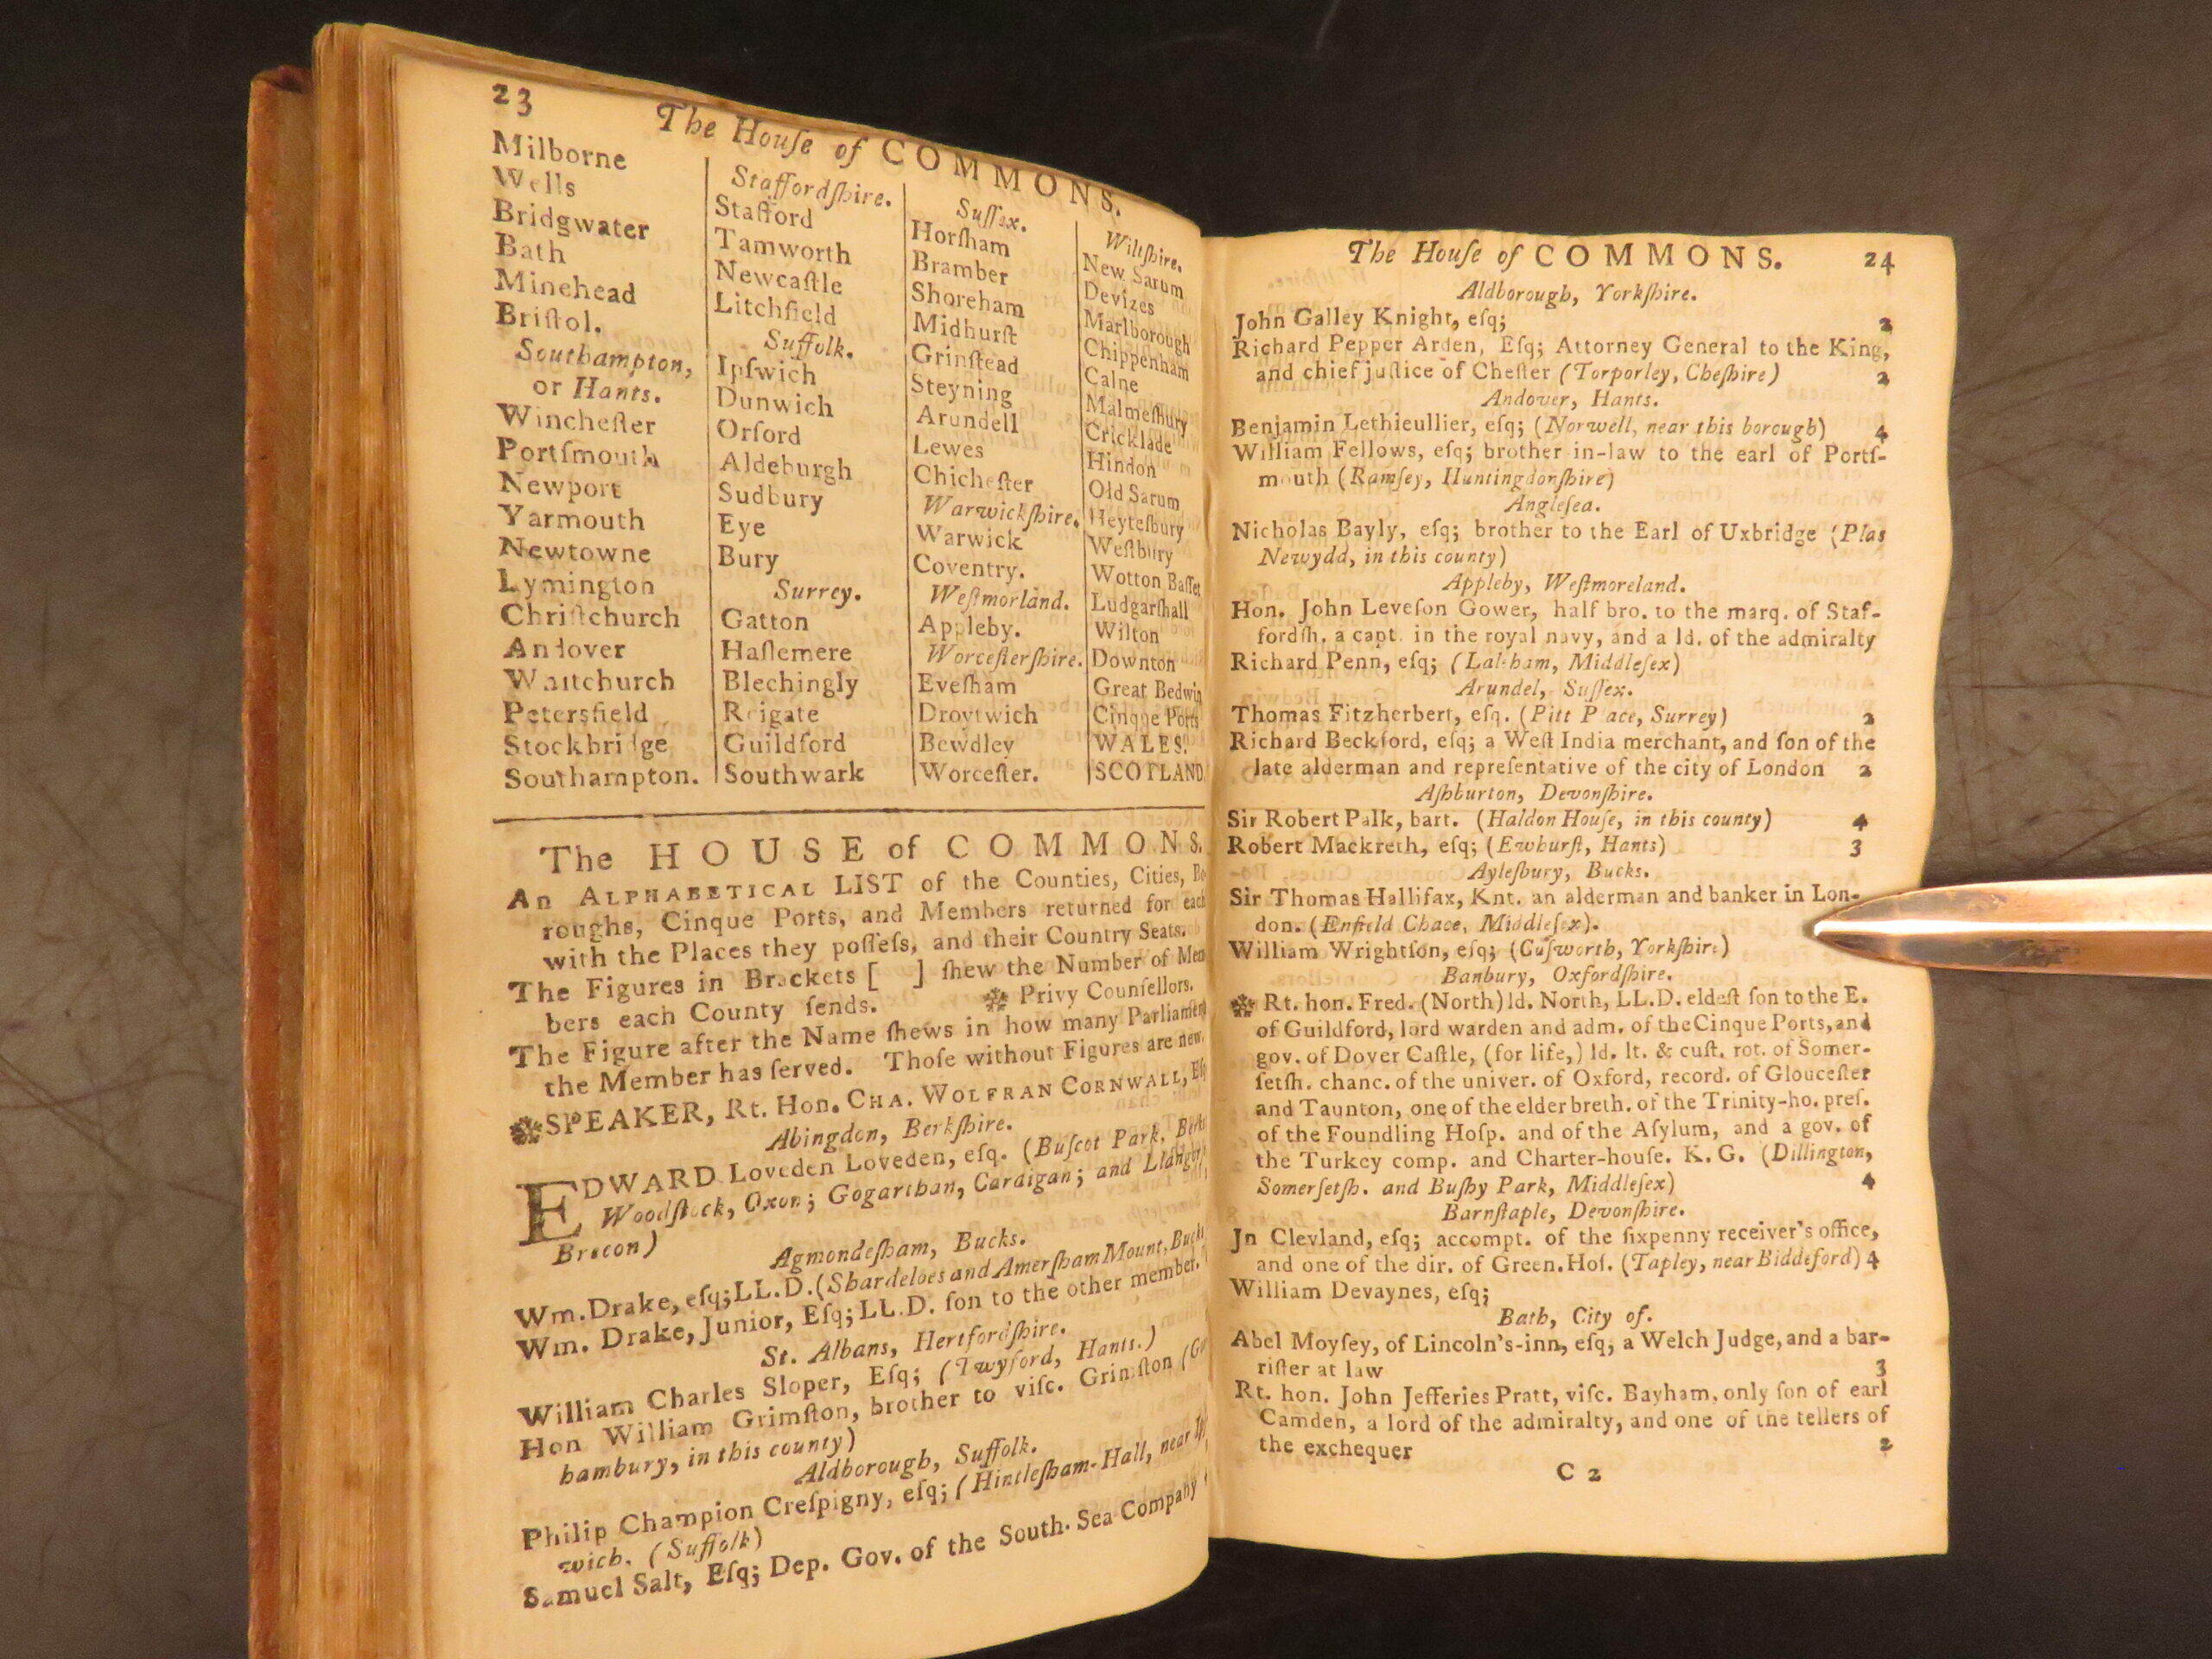 23
The Houſe of COMMONS.
Milborne
Wells
Bridgwater
Bath
Minehead
Briſtol.
Southampton,
or Hants.
Wincheſter
Portſmouth
Newport
Yarmouth
Newtowne
Lymington
Chriſtchurch
Andover
Whitchurch
Petersfield
Stockbridge
Southampton.
Staffordſhire.
Stafford
Tamworth
Newcaſtle
Litchfield
Suffolk.
Ipſwich
Dunwich
Orford
Aldeburgh
Sudbury
Eye
Bury
Surrey.
Gatton
Haſlemere
Blechingly
Reigate
Guildford
Southwark
Suſſex.
Horſham
Bramber
Shoreham
Midhurſt
Grinſtead
Steyning
Arundell
Lewes
Chicheſter
Warwickſhire.
Warwick
Coventry.
Weſtmorland.
Appleby.
Worceſterſhire.
Eveſham
Droytwich
Bewdley
Worceſter.
Wiltſhire.
New Sarum
Devizes
Marlborough
Chippenham
Calne
Malmeſbury
Cricklade
Hindon
Old Sarum
Heyteſbury
Weſtbury
Wotton Baſſet
Ludgarſhall
Wilton
Downton
Great Bedwin
Cinque Ports
WALES.
SCOTLAND
The HOUSE of COMMONS.
An ALPHABETICAL LIST of the Counties, Cities, Bo-
roughs, Cinque Ports, and Members returned for each
with the Places they poſſeſs, and their Country Seats.
The Figures in Brackets [ ] ſhew the Number of Mem
bers each County ſends. ❇ Privy Counſellors.
The Figure after the Name ſhews in how many Parliaments
the Member has ſerved. Thoſe without Figures are new.
❇SPEAKER, Rt. Hon. CHA. WOLFRAN CORNWALL, Eſq
Abingdon, Berkſhire.
EDWARD Loveden Loveden, eſq. (Buſcot Park, Berks
Woodſtock, Oxon; Gogarthan, Cardigan; and Llangby
Brecon)
Agmondeſham, Bucks.
Wm. Drake, eſq; LL.D. (Shardeloes and Amerſham Mount, Bucks
Wm. Drake, Junior, Eſq; LL.D. ſon to the other member.
St. Albans, Hertfordſhire.
William Charles Sloper, Eſq; (Twyford, Hants.)
Hon William Grimſton, brother to viſc. Grimſton (Go
hambury, in this county)
Aldborough, Suffolk.
Philip Champion Creſpigny, eſq; (Hintleſham-Hall, near Ip
wich. (Suffolk)
Samuel Salt, Eſq; Dep. Gov. of the South-Sea Company
The Houſe of COMMONS. 24
Aldborough, Yorkſhire.
John Galley Knight, eſq; 2
Richard Pepper Arden, Eſq; Attorney General to the King,
and chief juſtice of Cheſter (Torporley, Cheſhire) 2
Andover, Hants.
Benjamin Lethieullier, eſq; (Norwell, near this borough) 4
William Fellows, eſq; brother in-law to the earl of Portſ-
mouth (Ramſey, Huntingdonſhire)
Angleſea.
Nicholas Bayly, eſq; brother to the Earl of Uxbridge (Plas
Newydd, in this county)
Appleby, Weſtmoreland.
Hon. John Leveſon Gower, half bro. to the marq. of Staf-
fordſh. a capt. in the royal navy, and a ld. of the admiralty
Richard Penn, eſq; (Laleham, Middleſex)
Arundel, Suſſex.
Thomas Fitzherbert, eſq. (Pitt Place, Surrey) 2
Richard Beckford, eſq; a Weſt India merchant, and ſon of the
late alderman and repreſentative of the city of London 2
Aſhburton, Devonſhire.
Sir Robert Palk, bart. (Haldon Houſe, in this county) 4
Robert Mackreth, eſq; (Ewhurſt, Hants) 3
Ayleſbury, Bucks.
Sir Thomas Hallifax, Knt. an alderman and banker in Lon-
don. (Enfield Chace, Middleſex).
William Wrightſon, eſq; (Cuſworth, Yorkſhire)
Banbury, Oxfordſhire.
❇ Rt. hon. Fred. (North) ld. North, LL.D. eldeſt ſon to the E.
of Guildford, lord warden and adm. of the Cinque Ports, and
gov. of Dover Caſtle, (for life,) ld. lt. & cuſt. rot. of Somer-
ſetſh. chanc. of the univer. of Oxford, record. of Glouceſter
and Taunton, one of the elder breth. of the Trinity-ho. preſ.
of the Foundling Hoſp. and of the Aſylum, and a gov. of
the Turkey comp. and Charter-houſe. K. G. (Dillington,
Somerſetſh. and Buſhy Park, Middleſex) 4
Barnſtaple, Devonſhire.
Jn Clevland, eſq; accompt. of the ſixpenny receiver's office,
and one of the dir. of Green. Hoſ. (Tapley, near Biddeford) 4
William Devaynes, eſq;
Bath, City of.
Abel Moyſey, of Lincoln's-inn, eſq, a Welch Judge, and a bar-
riſter at law 3
Rt. hon. John Jefferies Pratt, viſc. Bayham, only ſon of earl
Camden, a lord of the admiralty, and one of the tellers of
the exchequer 2
C 2